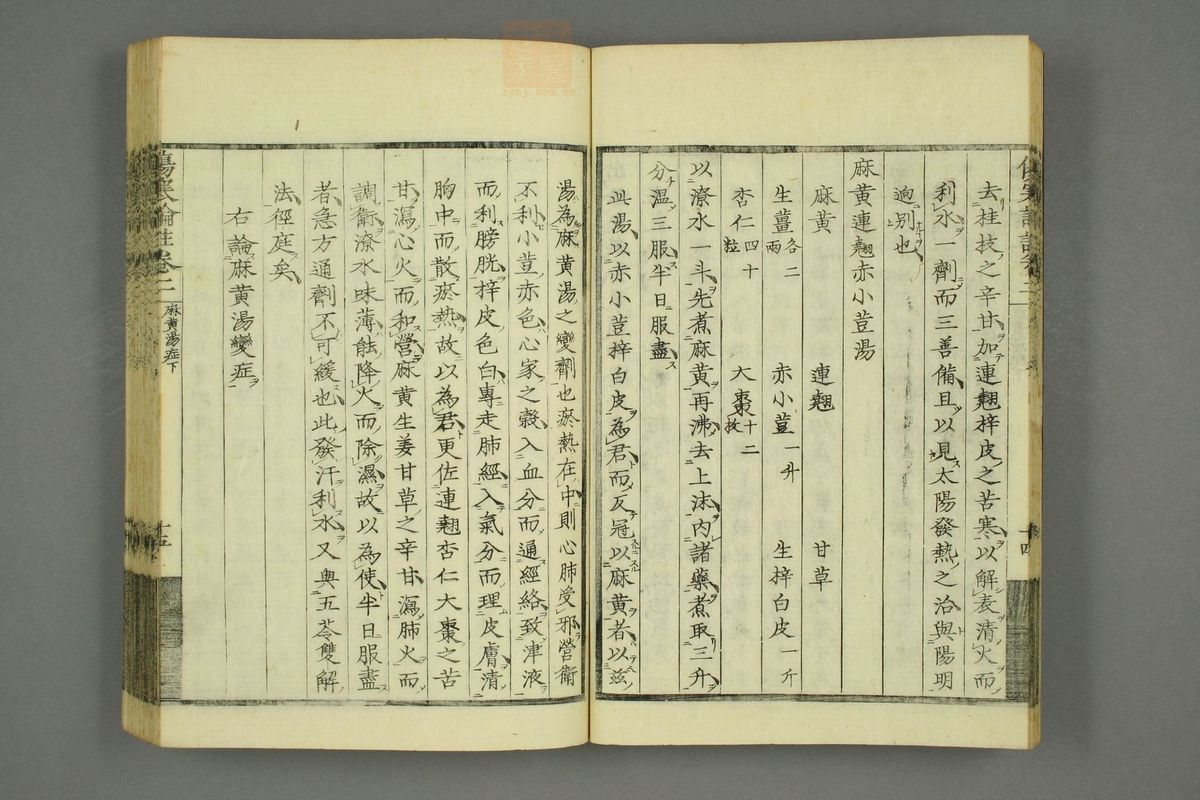 去桂枝之辛甘加連翹梓皮之苦寒以解表清火而
利水一劑而三善備且以見太陽發熱之治與陽明
逈別也
麻黄連翹赤小荳湯
麻黄 連翹 甘草
生薑各二兩 赤小荳一升 生梓白皮一斤
杏仁四十粒 大棗十二枚
以潦水一斗先煮麻黄再沸去上沫内諸藥煮取三升
分温三服半日服盡
此湯以赤小荳梓白皮為君而反冠以麻黄者以茲
十四
湯為麻黄湯之變劑也瘀熱在中則心肺受邪營衛
不利小荳赤色心家之穀入血分而通經絡致津液
而利膀胱梓皮色白專走肺經入氣分而理皮膚清
胸中而散瘀熱故以為君更佐連翹杏仁大棗之苦
甘瀉心火而和營麻黄生姜甘草之辛甘瀉肺火而
調衛潦水味薄能降火而除濕故以為使半日服盡
者急方通劑不可緩也此發汗利水又與五苓雙解
法徑庭矣
右論麻黄湯變症
傷寒論註卷二
麻黄湯症下
十五